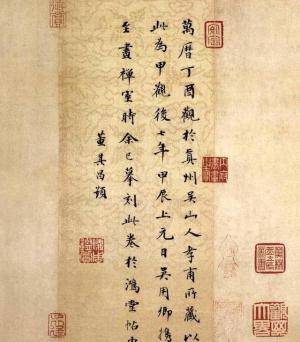 萬曆丁酉觀於真州吳山人孝甫所藏以
此為甲觀後七年甲辰上元日吳用卿攜
至畫禪室時余已摹刻此卷於鴻堂帖中
董其昌題